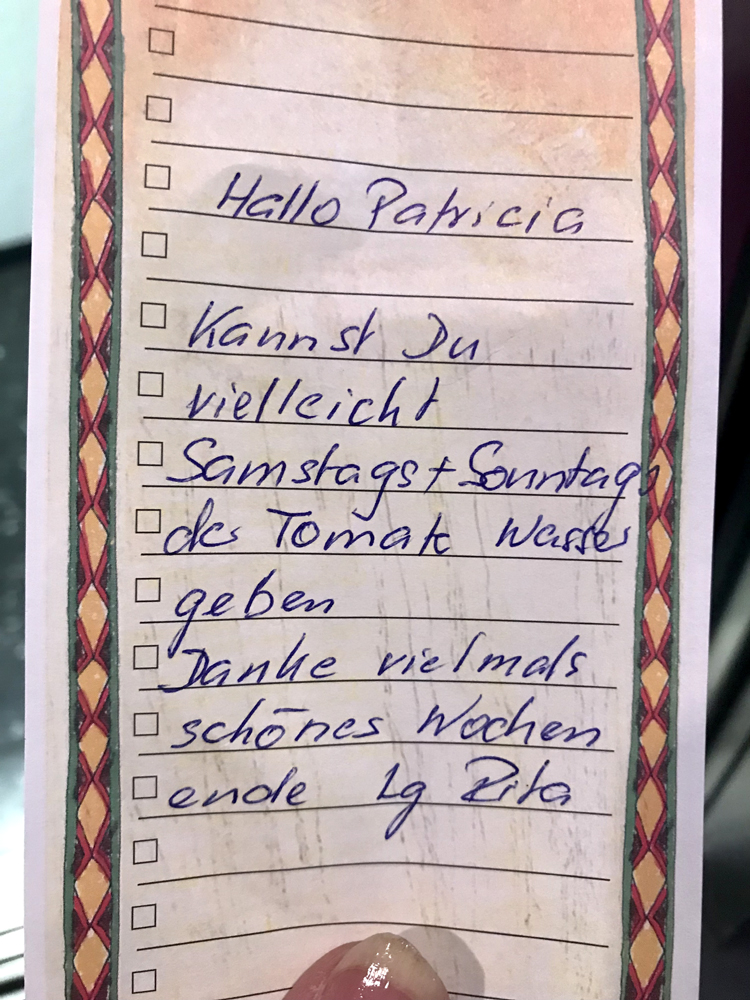 Hallo Patricia
Kannst Du
vielleicht
Samstags + Sonntags
des Tomate Wasser
geben
Danke vielmals
schönes Wochen
ende Lg Rita